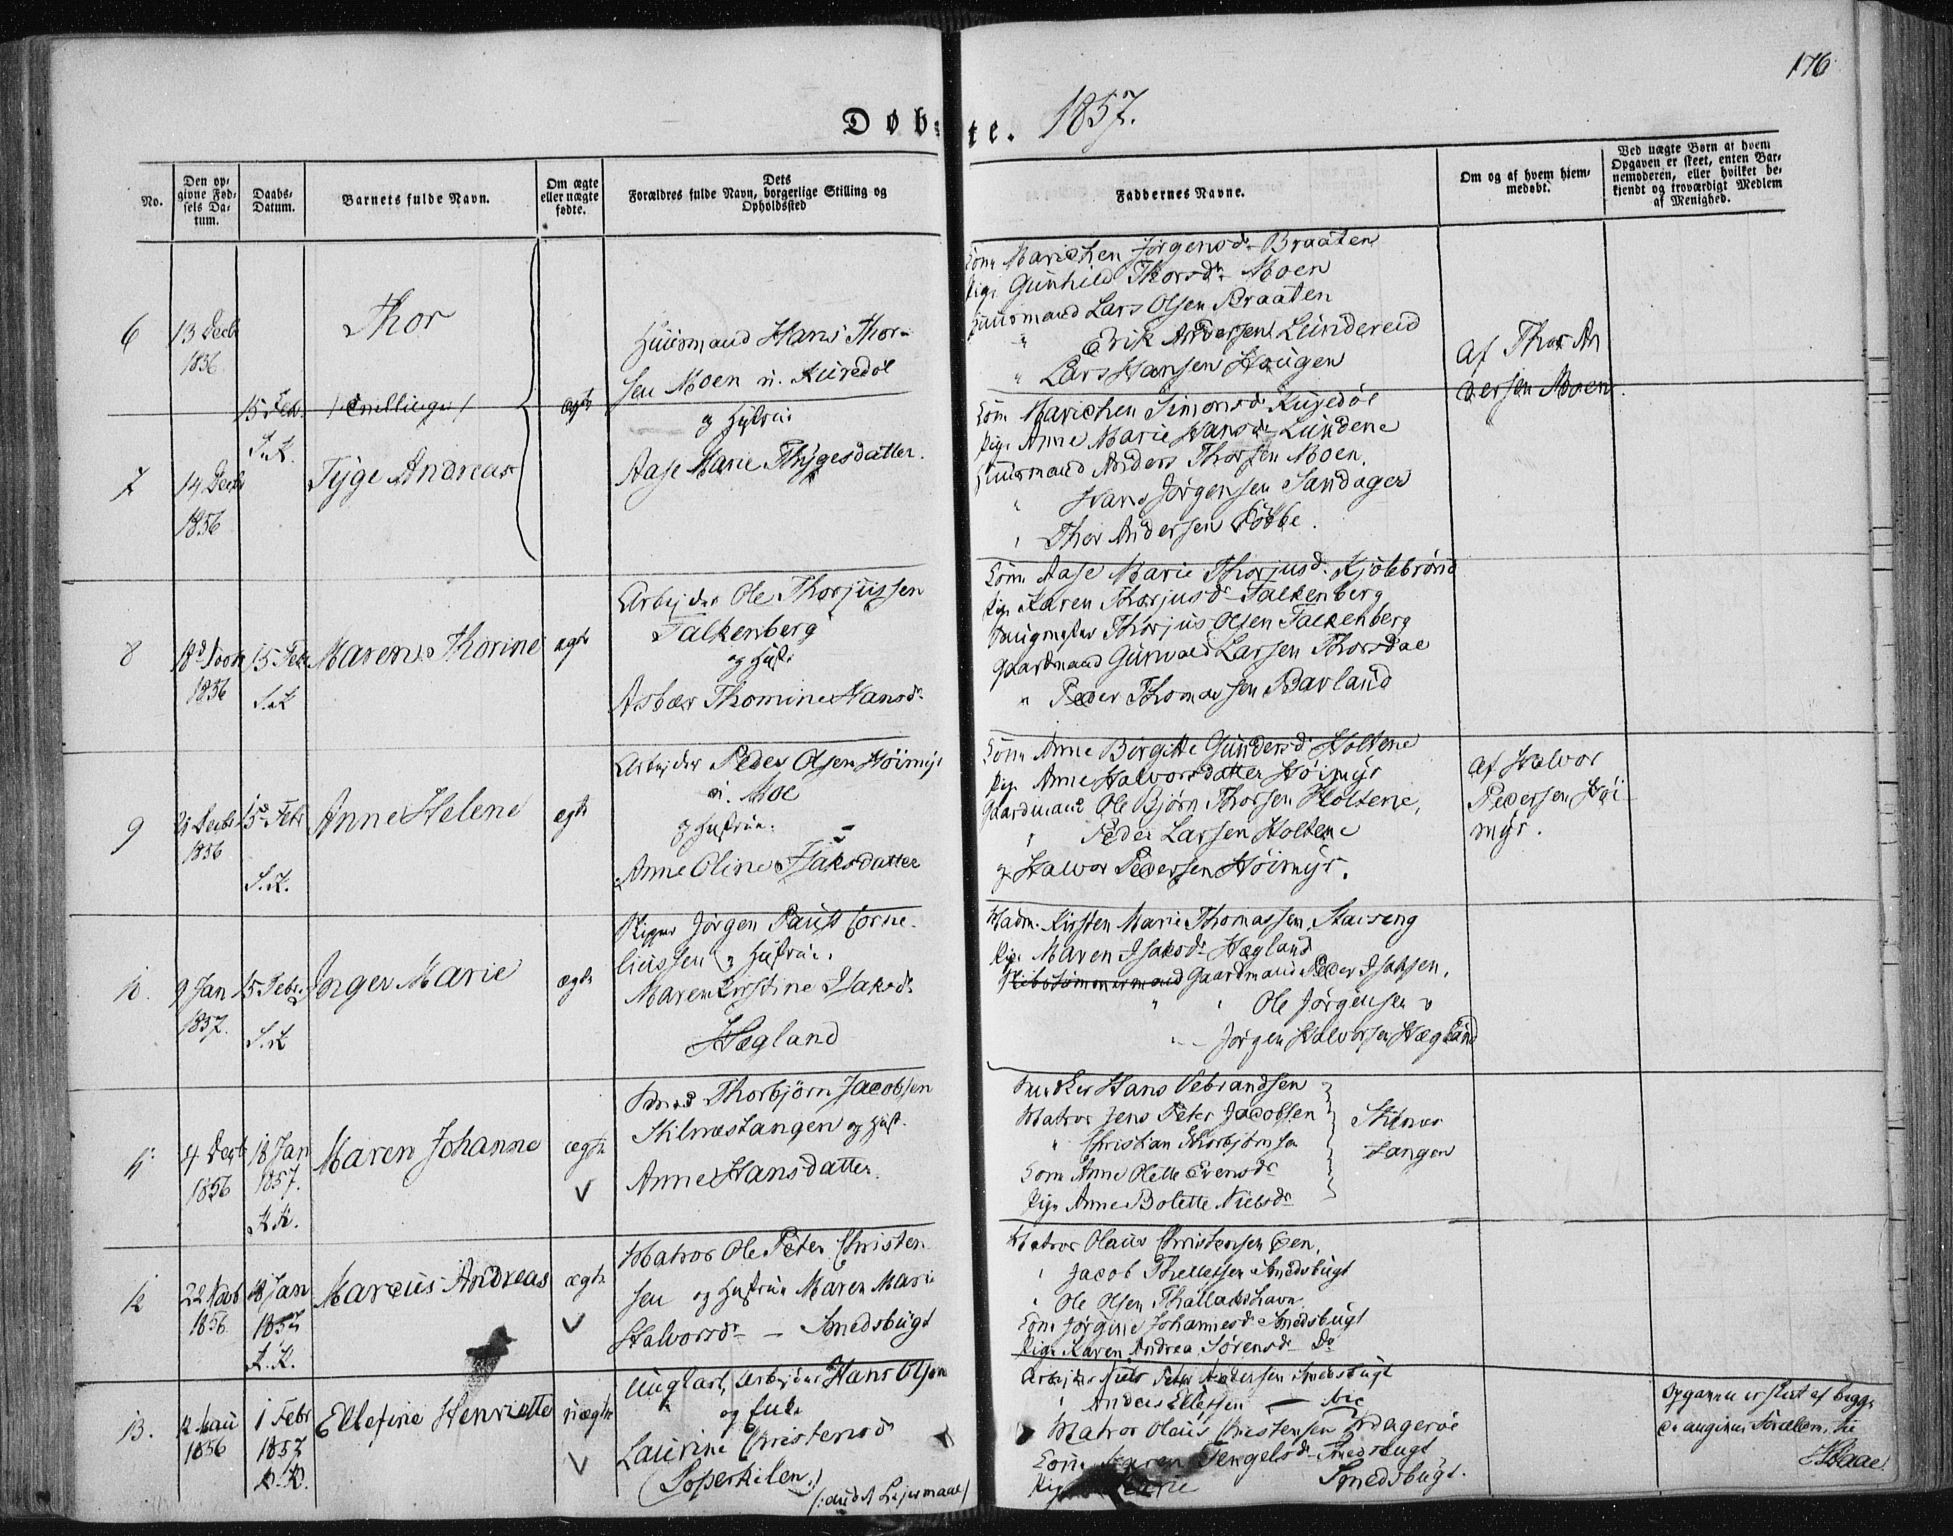 176
Døbte. 1857.
No.
Den opgivne Fødsels Datum.
Daabs-Datum.
Barnets fulde Navn.
Om ægte eller uægte fødte.
Dets Forældres fulde Navn, borgerlige Stilling og Opholdssted
Faddernes Navne.
Om og af hvem hjemmedøbt.
Ved uægte Børn af hvem Opgaven er skeet, enten Barnemoderen, eller hvilket bekjendt og troværdigt Medlem af Menighed.
6
13 Decb
1856.
15 Feb.
S.K.
Thor
/Tvillinger/
ægte
Huusmand Hans Thor-
sen Moen u.
og Hustrue
Aase Marie Thygesdatter.
Kone Marichen Jørgensd. Braaten
Pige Gunhild Thorsdr. Moen
Huusmand Lars Olsen Braaten
" Erik Andersen Lundereid
" Lars Hansen Haugen
af Thor An
dersen Moen.
7
14 Decb
1856
Tyge Andreas
Kone Marichen Simonsd.
Pige Anne Marie Hansdr Lundene
Huusmand Anders Thorsen Moen.
" Hans Jørgensen Sandager
" Thor Andersen
8
1856
15 Feb
S.K
Maren Thorine
ægte
Arbejder Ole Thorjussen
Falkenberg
og Hustr
Asbær Thomine Hansdr.
Kone Aase Marie Thorjusd. Kjølebrønd
Pige Karen Thorjusdr Falkenberg
Thorjus Olsen Falkenberg
Gaardmand Gunvald Larsen Thorsdal
" Peder Thomassen Barland
9
21 Decbr
1856
15 Febr
S.K.
Anne Helene
ægte
Arbejder Peder Olsen Høimyr
u. Moe
og Hustrue.
Anne Oline Isaksdatter
Kone Anne Birgitte Gundersd. Holtene
Pige Anne Halvorsdatter Høimyr
Gaardmand Ole Bjørn Thorsen Holtene,
" Peder Larsen Holtene
og Halvor Pedersen Høimyr.
af Halvor
Pedersen Høi-
myr.
10.
9 Jan
1857.
15 Febr.
S.K
Inger Marie
ægte
Skipper Jørgen Pauss Corne-
liussen og Hustrue.
Maren Kirstine Isaksdr
Hægland
Madm. Kirsten Marie Thomassen,
Pige Maren Isaksdr Hægland
Skibstømmermand Gaardmand Peder Isaksen,
" " Ole Jørgensen o
" - Jørgen Halvorsen Hægland
11.
4 Decb
1856
18 Jan
1857.
K.K.
Maren Johanne
ægte
V
Thorbjørn Jacobsen
Stilnestangen og Hust.
Anne Hansdatter.
Hans Vebrandsen
Matros Jens Peter Jacobsen
" Christian Thorbjørnsen
Kone Anne Olette Evensdr
Pige Anne Bolette Nielsdr
Stilnes
tangen
12
22
1856
18 Jan
1857
K.K.
Marcus Andreas
ægte
V
Matros Ole Peter Christen-
sen og Hustrue Maren Marie
Halvorsdr - Smedsbugt
Matros Olaus Christensen Øen,
" Jacob Thellefsen Smedsbugt
" Ole Olsen Thallakshavn
Kone Jørgine Johannesd. Smedsbugt
Pige Karen Andrea Sørensd. Do
13.
12
1856
1 Febr
1857
K.K.
Ellefine Henriette
uægte
V
Ungkarl, Arbejder Hans Olsen
og Enke
Laurine Christensdr
(Soperkilen.)
(: andet Leiermaal)
Arbejder Niels Peter Andersen Smedsbugt
" Anders Ellefsen
Matros Olaus Christensen
Kone Karen Tengelsd. Smedsbugt
Pige Marie Smedsbugt.
Opgaven er skeet af begge
de angivne Forældre, til